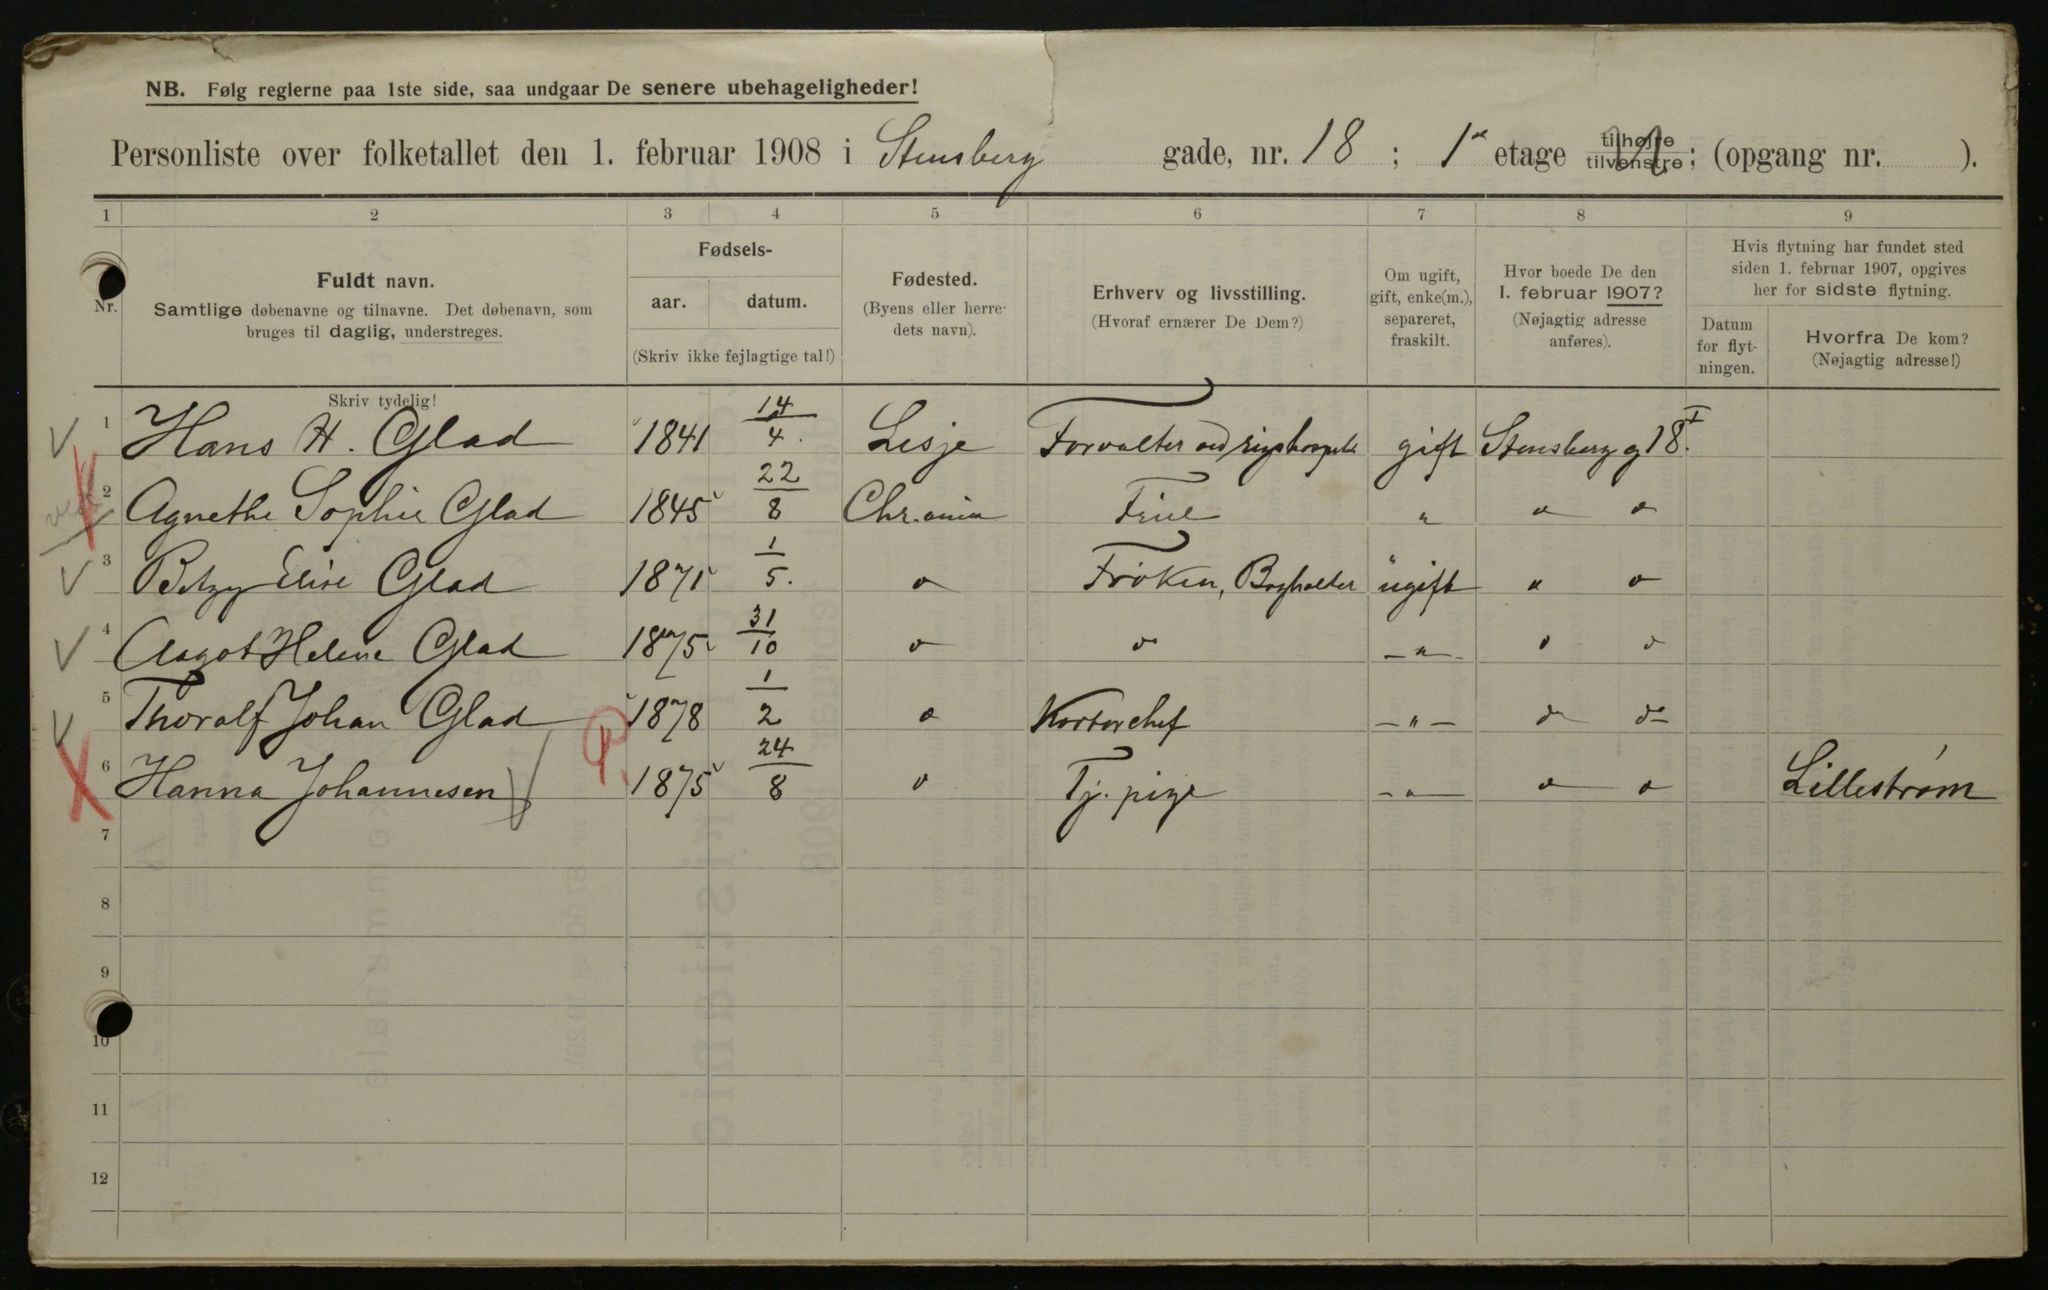 NB. Følg reglerne paa 1ste side, saa undgaar De senere ubehageligheder!
Personliste over folketallet den 1. februar 1908 i Stensberg gade, nr. 18 ; 1ste etage tilhøjre tilvenstre ; (opgang nr. ).
1 2 3 4 5 6 7 8 9
Nr.
Fuldt navn.
Samtlige døbenavne og tilnavne. Det døbenavn, som
bruges til daglig, understreges.
Skriv tydelig!
Fødsels-
aar. datum.
(Skriv ikke fejlagtige tal!)
Fødested.
(Byens eller herre-
dets navn).
Erhverv og livsstilling.
(Hvoraf ernærer De Dem?)
Om ugift,
gift, enke(m.),
separeret,
fraskilt.
Hvor boede De den
1. februar 1907?
(Nøjagtig adresse
anføres).
Hvis flytning har fundet sted
siden 1. februar 1907, opgives
her for sidste flytning.
Datum
for flyt-
ningen.
Hvorfra De kom?
(Nøjagtig adresse!)
1 Hans H. Glad 1841 14/4. Lesje Forvalter ved rigshospit. gift Stensberg g 18 I.
2 Agnethe Sophie Glad 1845 22/8 Chr.ania Frue " " "
3 Betzy Elise Glad 1871 1/5. " Frøken, Bogholder ugift " "
4 Aagot Helene Glad 1875 31/10 " " - " - " "
5 Thoralf Johan Glad 1878 1/2 " Kontorchef - " - " "
6 Hanna Johannesen 1875 24/8 " Tj. pige - " - " " Lillestrøm
7
8
9
10
11
12